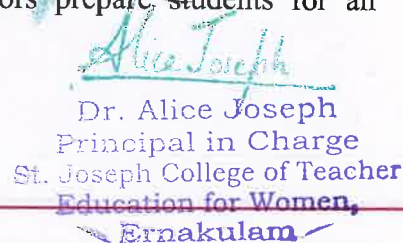 ors prepare students for an
Alice Joseph
Dr. Alice Joseph
Principal in Charge
St. Joseph College of Teacher
Education for Women,
Ernakulam